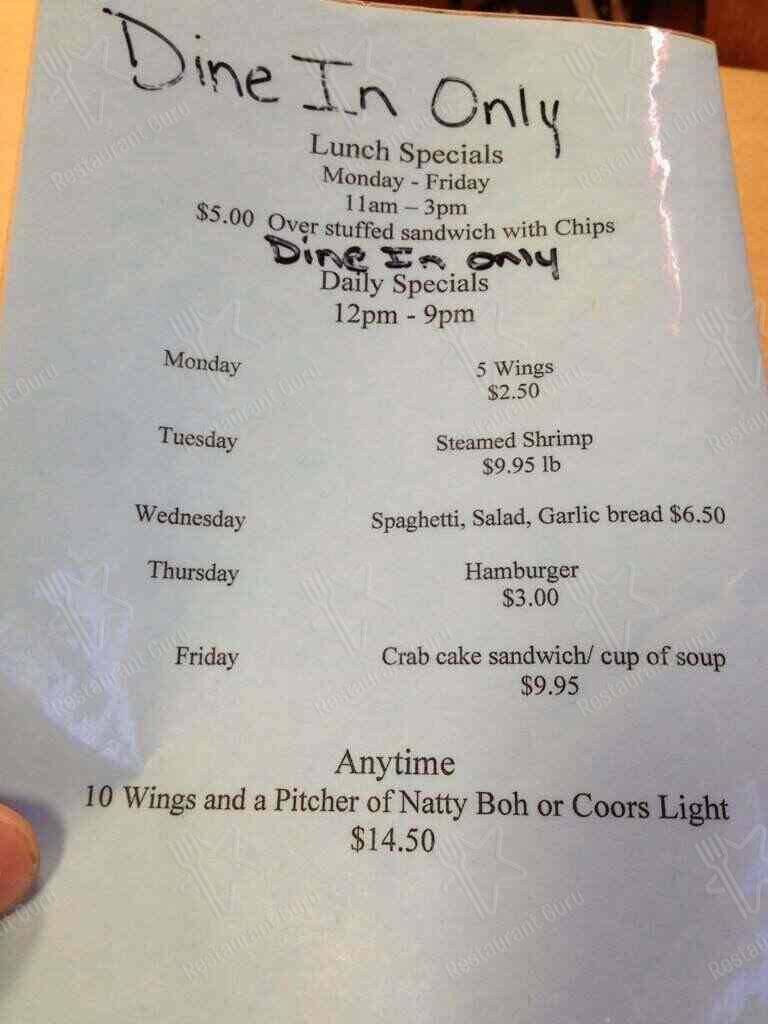 Dine In Only
Lunch Specials
Monday - Friday
11am – 3pm
$5.00 Over stuffed sandwich with Chips
Dine In only
Daily Specials
12pm - 9pm
Monday 5 Wings
$2.50
Tuesday Steamed Shrimp
$9.95 lb
Wednesday Spaghetti, Salad, Garlic bread $6.50
Thursday Hamburger
$3.00
Friday Crab cake sandwich/ cup of soup
$9.95
Anytime
10 Wings and a Pitcher of Natty Boh or Coors Light
$14.50
Restaurant Guru